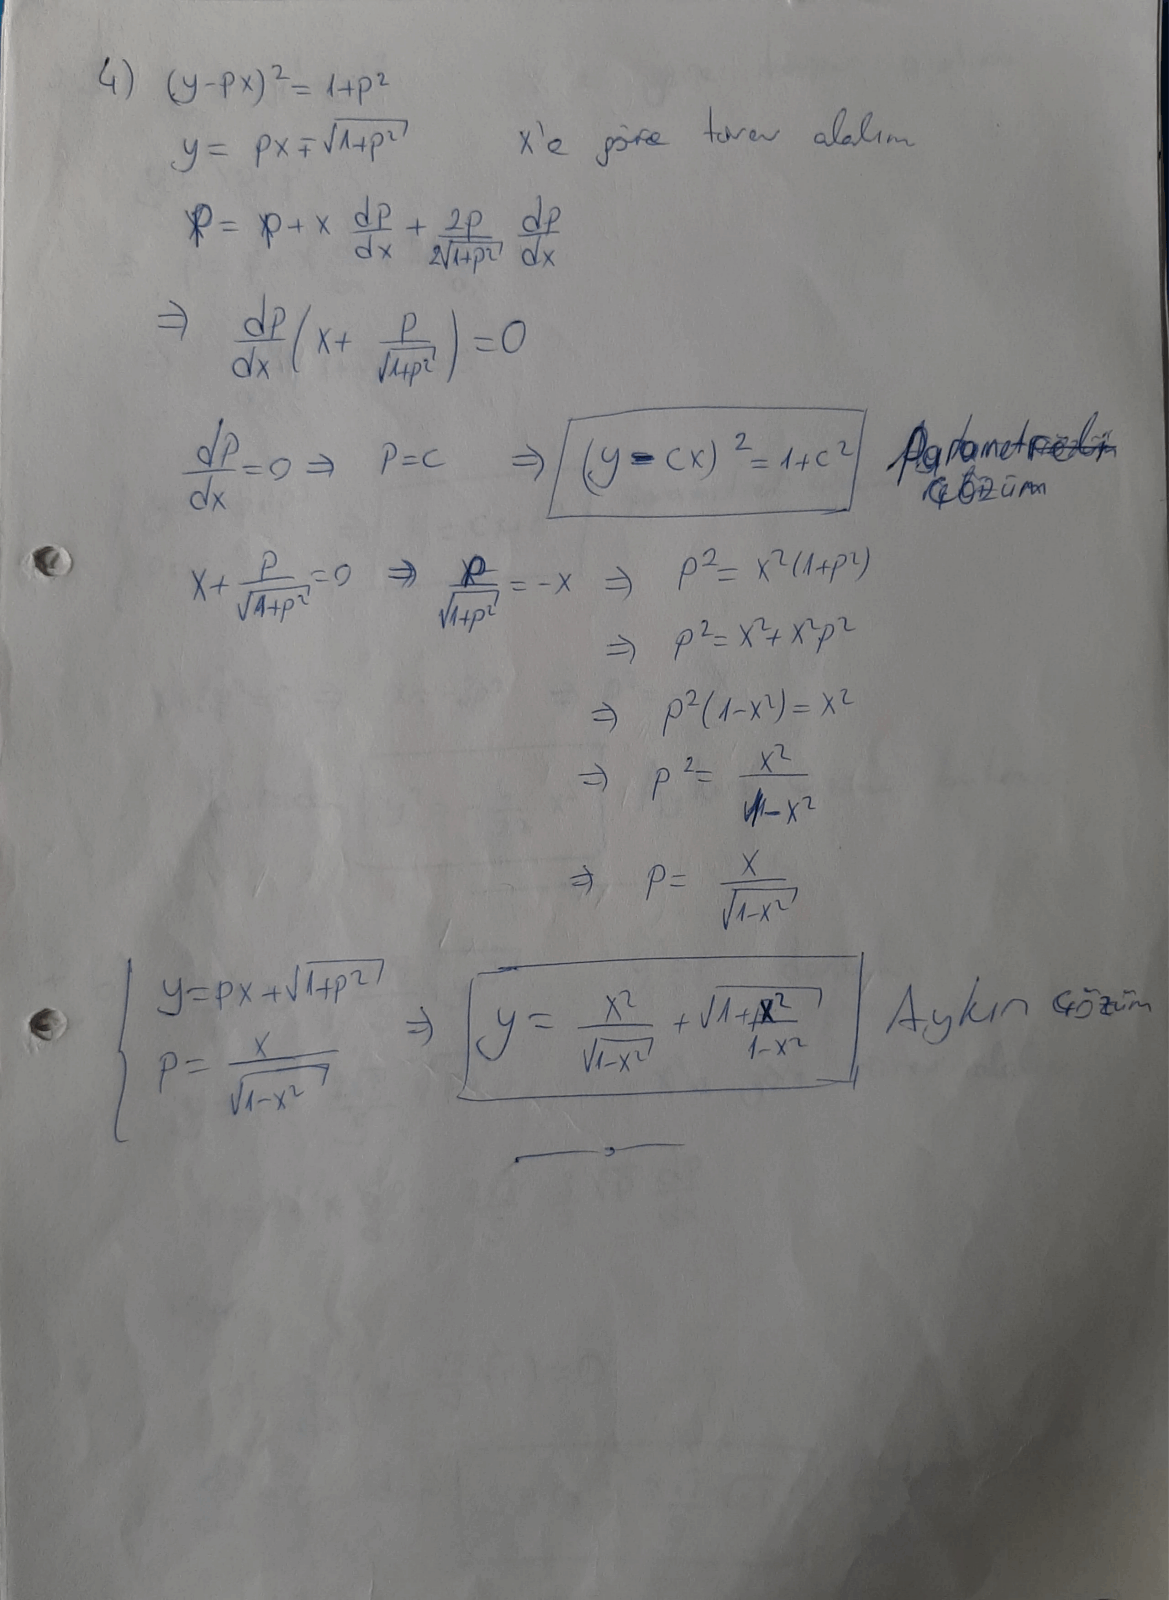 4) (y-px)² = 1+p²
y = px ∓ √(1+p²) x'e göre türev alalım
p = p + x dp/dx + 2p/(2√(1+p²)) dp/dx
⇒ dp/dx (x + p/√(1+p²)) = 0
dp/dx = 0 ⇒ p=c ⇒ (y-cx)² = 1+c²
Çözüm
x + p/√(1+p²) = 0 ⇒ p/√(1+p²) = -x ⇒ p² = x²(1+p²)
⇒ p² = x² + x²p²
⇒ p²(1-x²) = x²
⇒ p² = x²/(1-x²)
⇒ p = x/√(1-x²)
{ y = px + √(1+p²)
p = x/√(1-x²) ⇒ y = x²/√(1-x²) + √(1 + x²/(1-x²)) Aykırı Çözüm